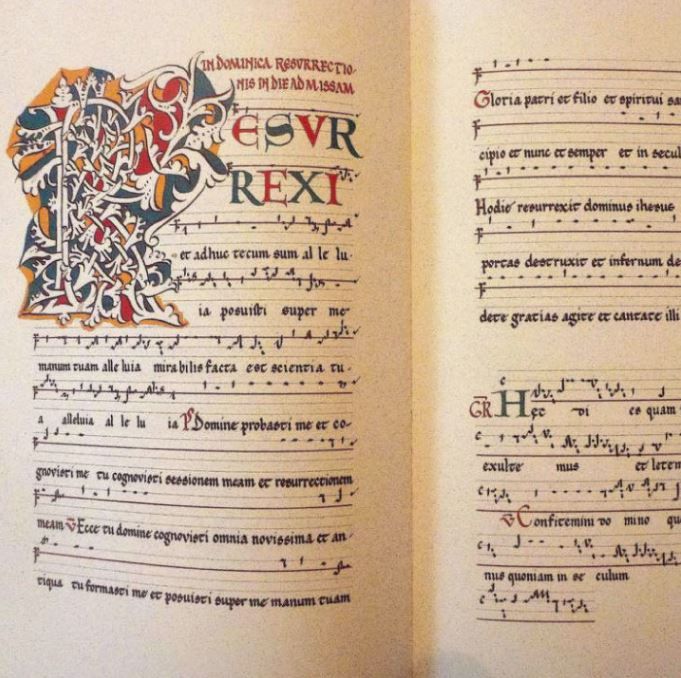 IN DOMINICA RESVRRECTIO-
NIS IN DIE AD MISSAM
RESVR
REXI
et adhuc tecum sum al le lu-
ia posuisti super me
manum tuam alle luia mirabilis facta est scientia tu-
a alleluia al le lu ia Ps Domine probasti me et co-
gnovisti me tu cognovisti sessionem meam et resurrectionem
meam V Ecce tu domine cognovisti omnia novissima et an-
tiqua tu formasti me et posuisti super me manum tuam
Gloria patri et filio et spiritui
cipio et nunc et semper et in
Hodie resurrexit dominus ihesus
portas destruxit et infernum
dete gratias agite et cantate illi
GR Hec di es quam
exulte mus et
V Confitemini do mino
nus quoniam in se culum